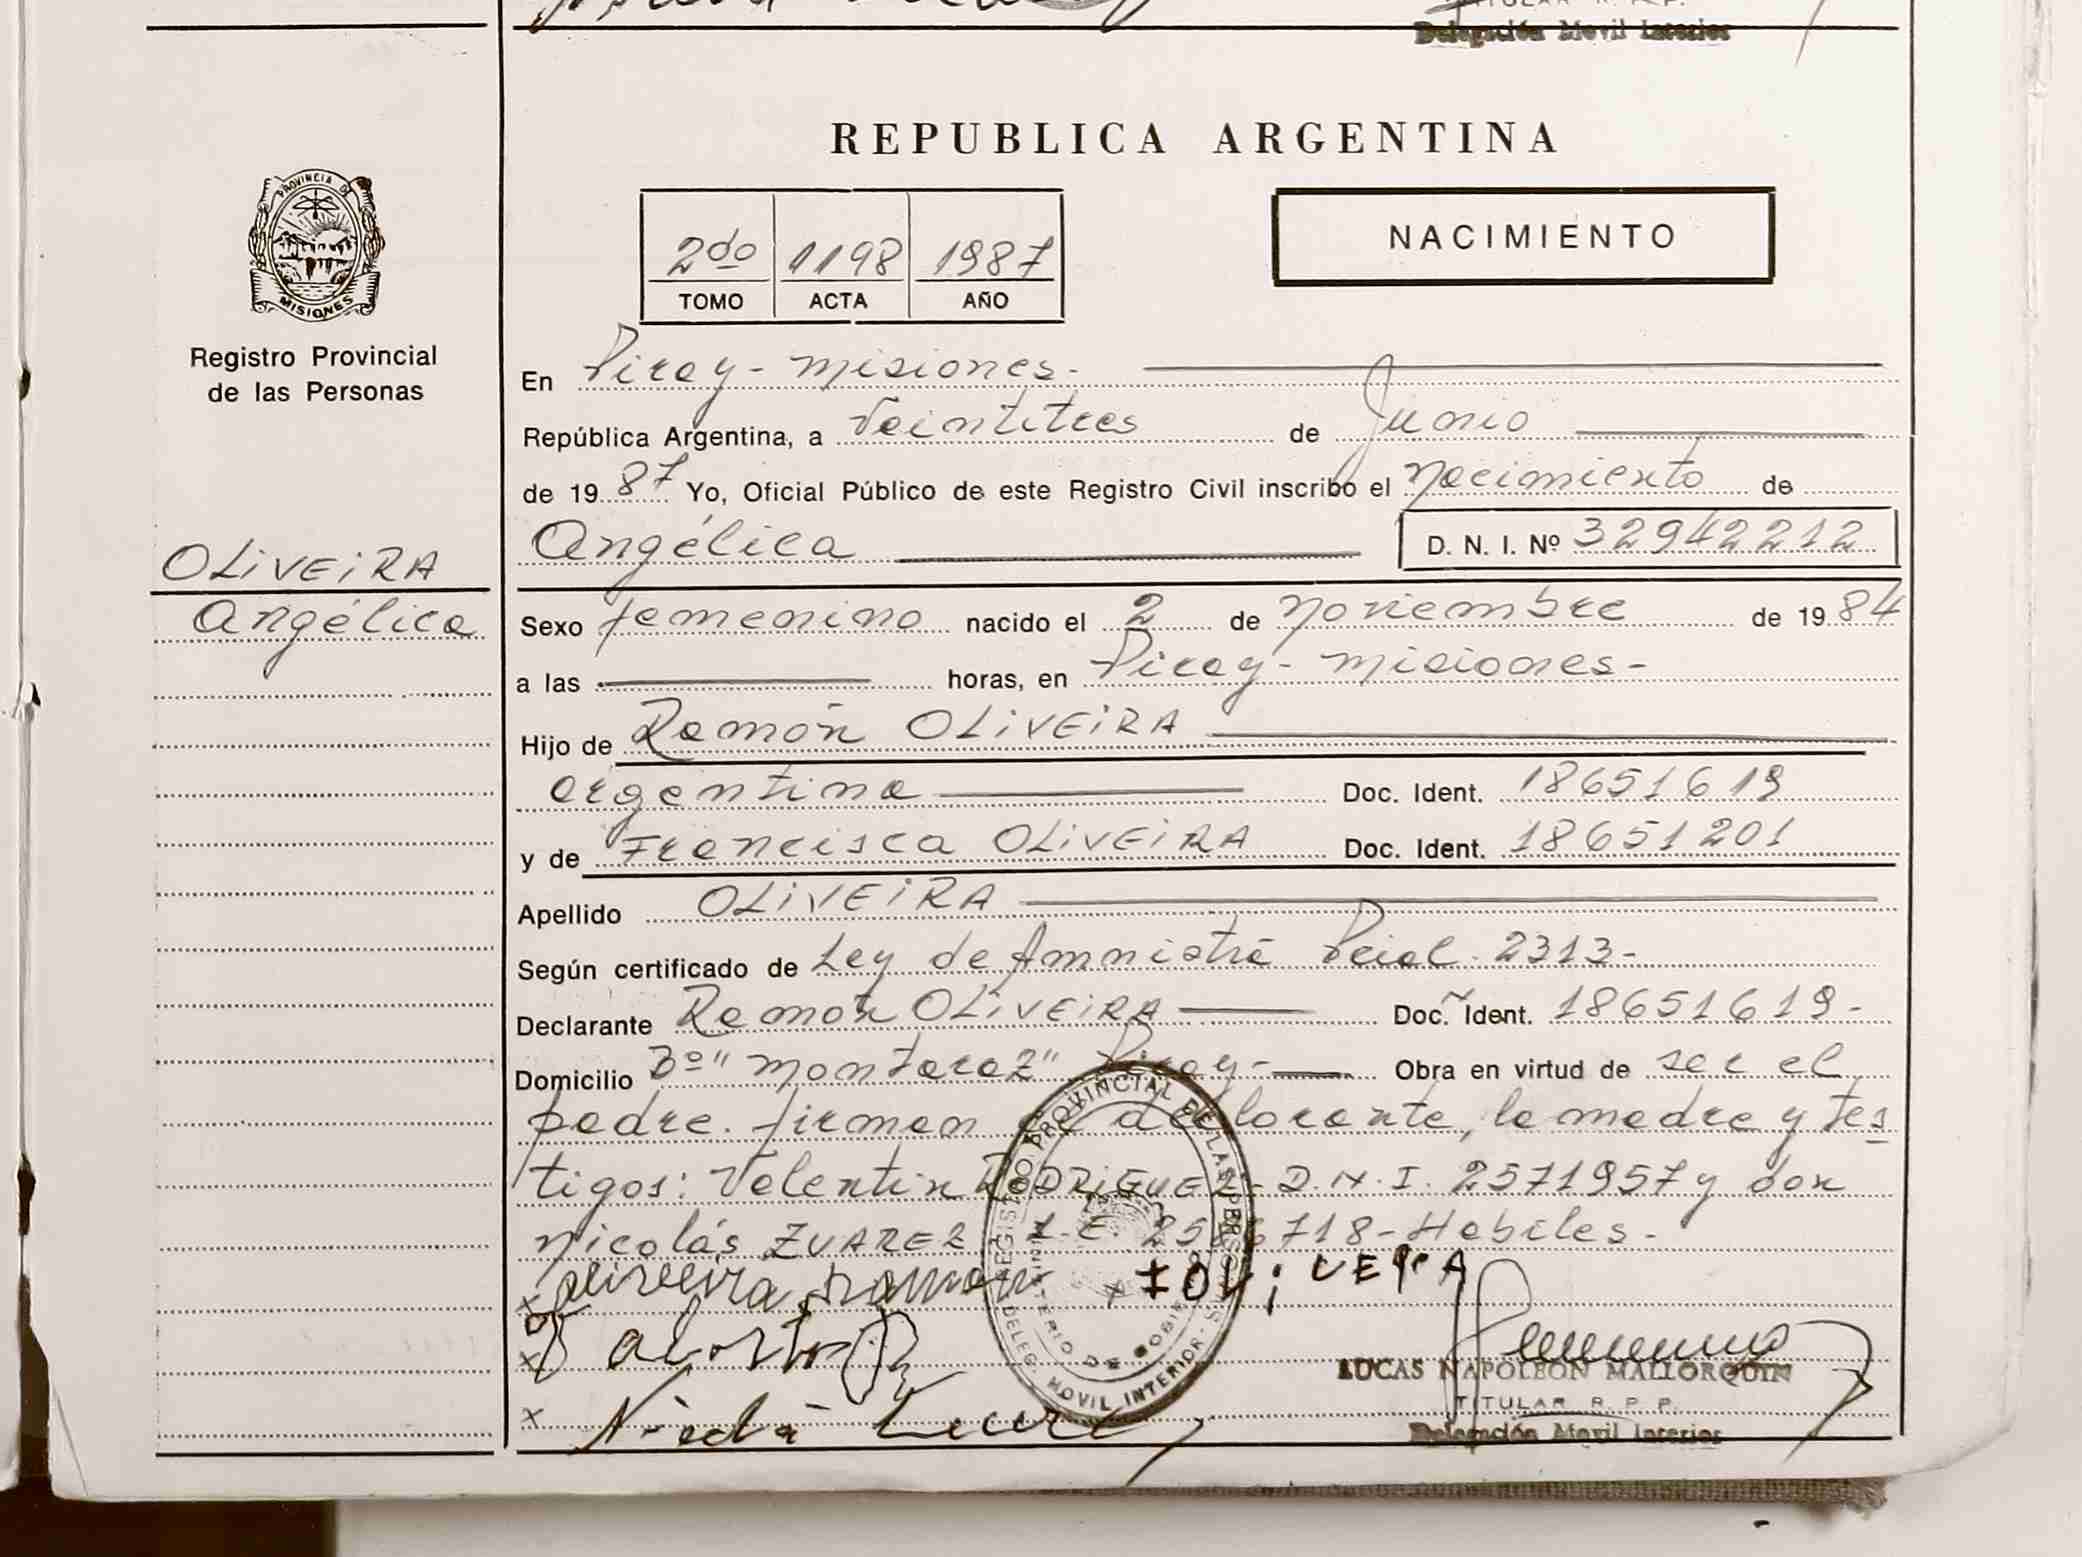 TITULAR R. P. P.
Delegación Movil Interior
REPUBLICA ARGENTINA
PROVINCIA DE
MISIONES
Registro Provincial
de las Personas
2do 1198 1987
TOMO ACTA AÑO
NACIMIENTO
En Piray - Misiones -
República Argentina, a Veintitres de Junio
de 1987 Yo, Oficial Público de este Registro Civil inscribo el Nacimiento de
Angélica D. N. I. Nº 32942212
OLIVEIRA
Angélica
Sexo femenino nacido el 2 de Noviembre de 1984
a las horas, en Piray - Misiones -
Hijo de Ramón OLIVEIRA
argentina Doc. Ident. 18651619
y de Francisca OLIVEIRA Doc. Ident. 18651201
Apellido OLIVEIRA
Según certificado de Ley de Amnistía Pcial. 2313-
Declarante Ramón OLIVEIRA Doc. Ident. 18651619-
Domicilio Bº "Montaraz" Piray - Obra en virtud de ser el
padre. firman el declarante, la madre y tes
tigos: Valentin RODRIGUEZ - D.N.I. 2571957 y don
Nicolás ZUAREZ L.E. 2586718 - Habiles -
x oliveira ramon x
x
x
REGISTRO PROVINCIAL DE LAS PERSONAS
MINISTERIO DE GOBIERNO
DELEG. MOVIL INTERIOR
LUCAS NAPOLEON MALLORQUIN
TITULAR R. P. P.
Delegación Movil Interior